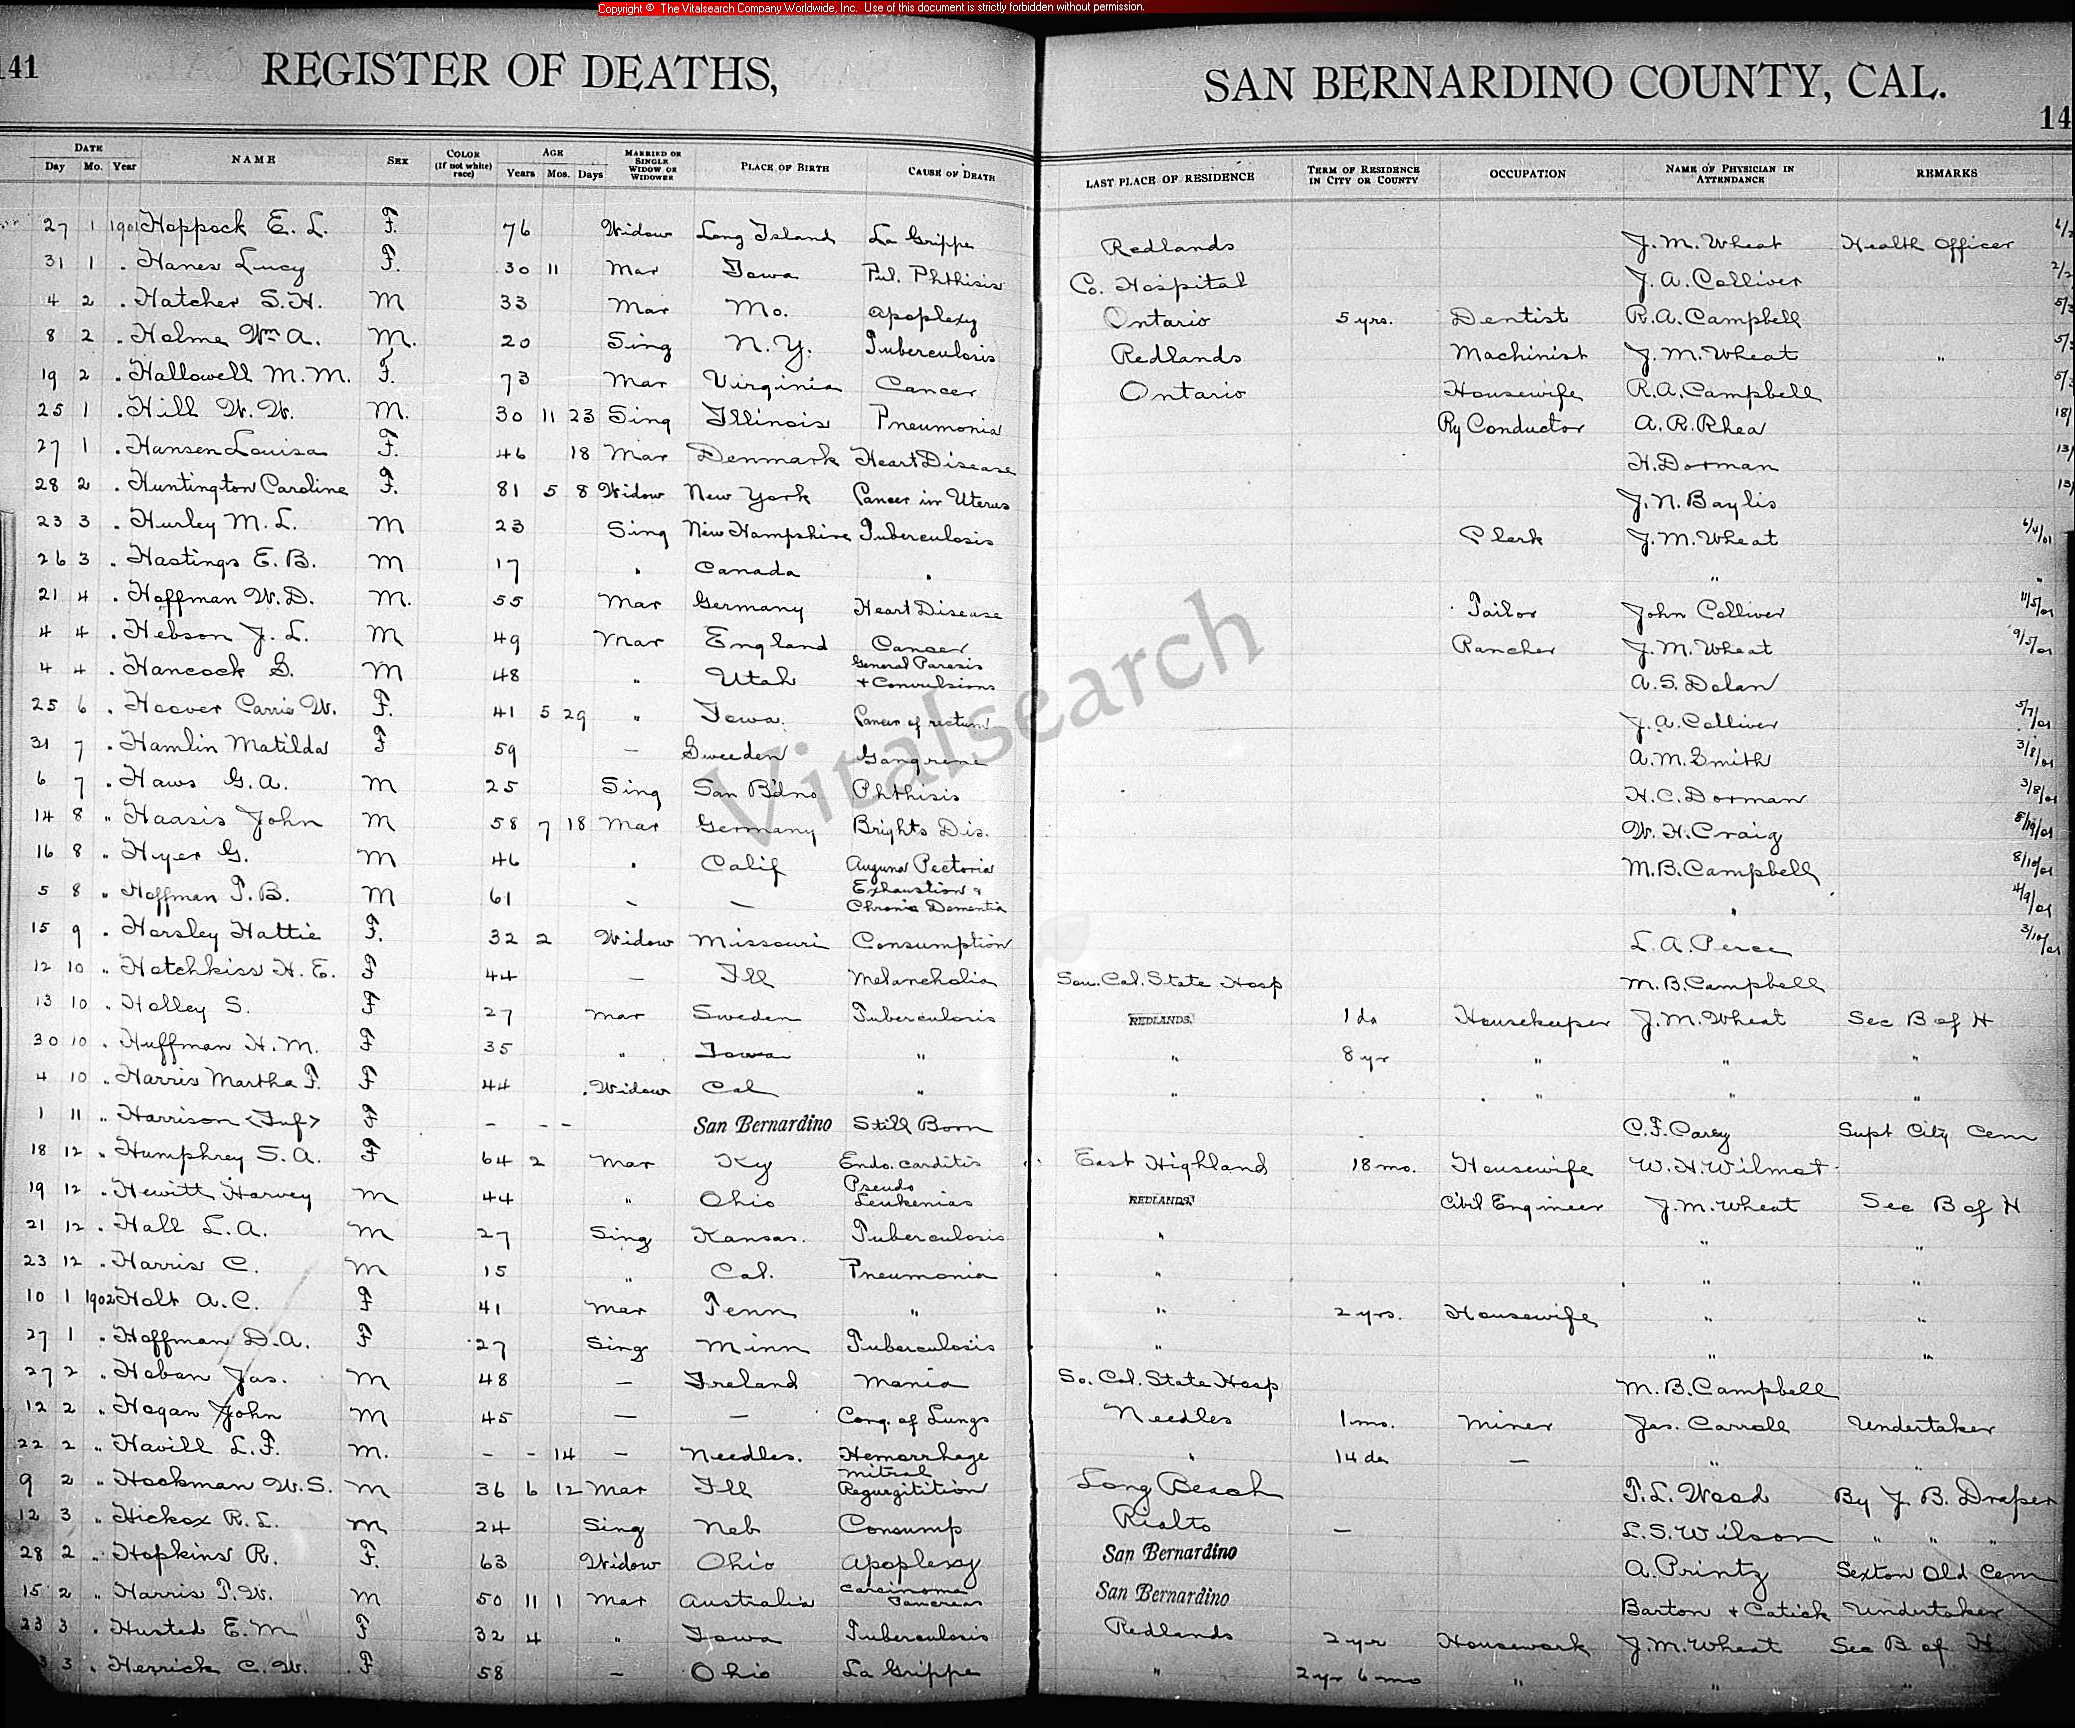 Copyright © The Vitalsearch Company Worldwide, Inc. Use of this document is strictly forbidden without permission.
141 REGISTER OF DEATHS, SAN BERNARDINO COUNTY, CAL. 14
DATE Day Mo. Year NAME SEX COLOR (If not white) race) AGE Years Mos. Days MARRIED OR SINGLE WIDOW OR WIDOWER PLACE OF BIRTH CAUSE OF DEATH LAST PLACE OF RESIDENCE TERM OF RESIDENCE IN CITY OR COUNTY OCCUPATION NAME OF PHYSICIAN IN ATTENDANCE REMARKS
27 1 1901 Hoppock E. L. F. 76 Widow Long Island La Grippe Redlands J. M. Wheat Health Officer
31 1 . Hanes Lucy F. 30 11 Mar Iowa Pul. Phthisis Co. Hospital J. A. Colliver
4 2 . Hatcher S. H. M 33 Mar Mo. Apoplexy Ontario 5 yrs. Dentist R. A. Campbell
8 2 . Holme Wm A. M. 20 Sing N. Y. Tuberculosis Redlands Machinist J. M. Wheat "
19 2 . Hallowell M. M. F. 73 Mar Virginia Cancer Ontario Housewife R. A. Campbell
25 1 . Hill W. W. M. 30 11 23 Sing Illinois Pneumonia Ry Conductor A. R. Rhea
27 1 . Hansen Louisa F. 46 18 Mar Denmark Heart Disease H. Dorman
28 2 . Huntington Caroline F. 81 5 8 Widow New York Cancer in Uterus J. N. Baylis
23 3 . Hurley M. L. M 23 Sing New Hampshire Tuberculosis Clerk J. M. Wheat 6/4/01
26 3 . Hastings E. B. M 17 " Canada " " "
21 4 . Hoffman W. D. M. 55 Mar Germany Heart Disease Tailor John Colliver 11/5/01
4 4 . Hebson J. L. M 49 Mar England Cancer Rancher J. M. Wheat 9/5/01
4 4 . Hancock G. M 48 " Utah General Paresis + Convulsions A. S. Dolan
25 6 . Hoover Carrie W. F. 41 5 29 " Iowa. Cancer of rectum J. A. Colliver 5/7/01
31 7 . Hamlin Matilda F 59 — Sweeden Gangrene A. M. Smith 3/8/01
6 7 . Haws G. A. M 25 Sing San B'dno Phthisis H. C. Dorman 3/8/01
14 8 " Haasis John M 58 7 18 Mar Germany Brights Dis. W. H. Craig 8/19/01
16 8 " Hyer G. M 46 " Calif Auguna Pectoria M. B. Campbell 8/10/01
5 8 " Hoffman T. B. M 61 — — Exhaustion & Chronic Dementia " 4/9/01
15 9 . Horsley Hattie F. 32 2 Widow Missouri Consumption L. A. Perce 3/10/01
12 10 " Hotchkiss H. E. F 44 — Ill Melancholia Sou. Cal. State Hosp M. B. Campbell
13 10 . Holley S. F 27 Mar Sweden Tuberculosis REDLANDS. 1 da Housekeeper J. M. Wheat Sec B of H
30 10 . Huffman H. M. F 35 " Iowa " " 8 yr " " "
4 10 . Harris Martha T. F 44 . Widow Cal " " " " "
1 11 " Harrison <Inf> F - - - San Bernardino Still Born C. F. Carey Supt City Cem
18 12 " Humphrey S. A. F 64 2 Mar Ky Endo. carditis East Highland 18 mo. Housewife W. H. Wilmot
19 12 . Hewitt Harvey M 44 " Ohio Pseudo Leukenias REDLANDS. Civil Engineer J. M. Wheat Sec B of H
21 12 . Hall L. A. M 27 Sing Kansas. Tuberculosis " " "
23 12 . Harris C. M 15 " Cal. Pneumonia " " "
10 1 1902 Holt A. C. F 41 Mar Penn " " 2 yrs. Housewife " "
27 1 . Hoffman D. A. F 27 Sing Minn Tuberculosis " " "
27 2 " Hoban Jas. M 48 — Ireland Mania So. Cal. State Hosp M. B. Campbell
12 2 " Hogan John M 45 — — Cong. of Lungs Needles 1 mo. Miner Jas. Carroll Undertaker
22 2 " Havill L. F. M. - - 14 — Needles. Hemorrhage " 14 da — " "
9 2 " Hockman W. S. M 36 6 12 Mar Ill Mitral Regurgitition Long Beach T. L. Wood By J. B. Draper
12 3 " Hickox R. L. M 24 Sing Neb Consump Rialto — L. S. Wilson " " "
28 2 " Hopkins R. F. 63 Widow Ohio Apoplexy San Bernardino A. Printz Sexton Old Cem
15 2 " Harris T. W. M 50 11 1 Mar Australia Carcinoma Pancreas San Bernardino Barton & Catick Undertaker
23 3 . Husted E. M F 32 4 " Iowa Tuberculosis Redlands 2 yr Housework J. M. Wheat Sec B of H
3 3 " Herrick C. W. F 58 — Ohio La Grippe " 2 yr 6 mo " " "
Vitalsearch